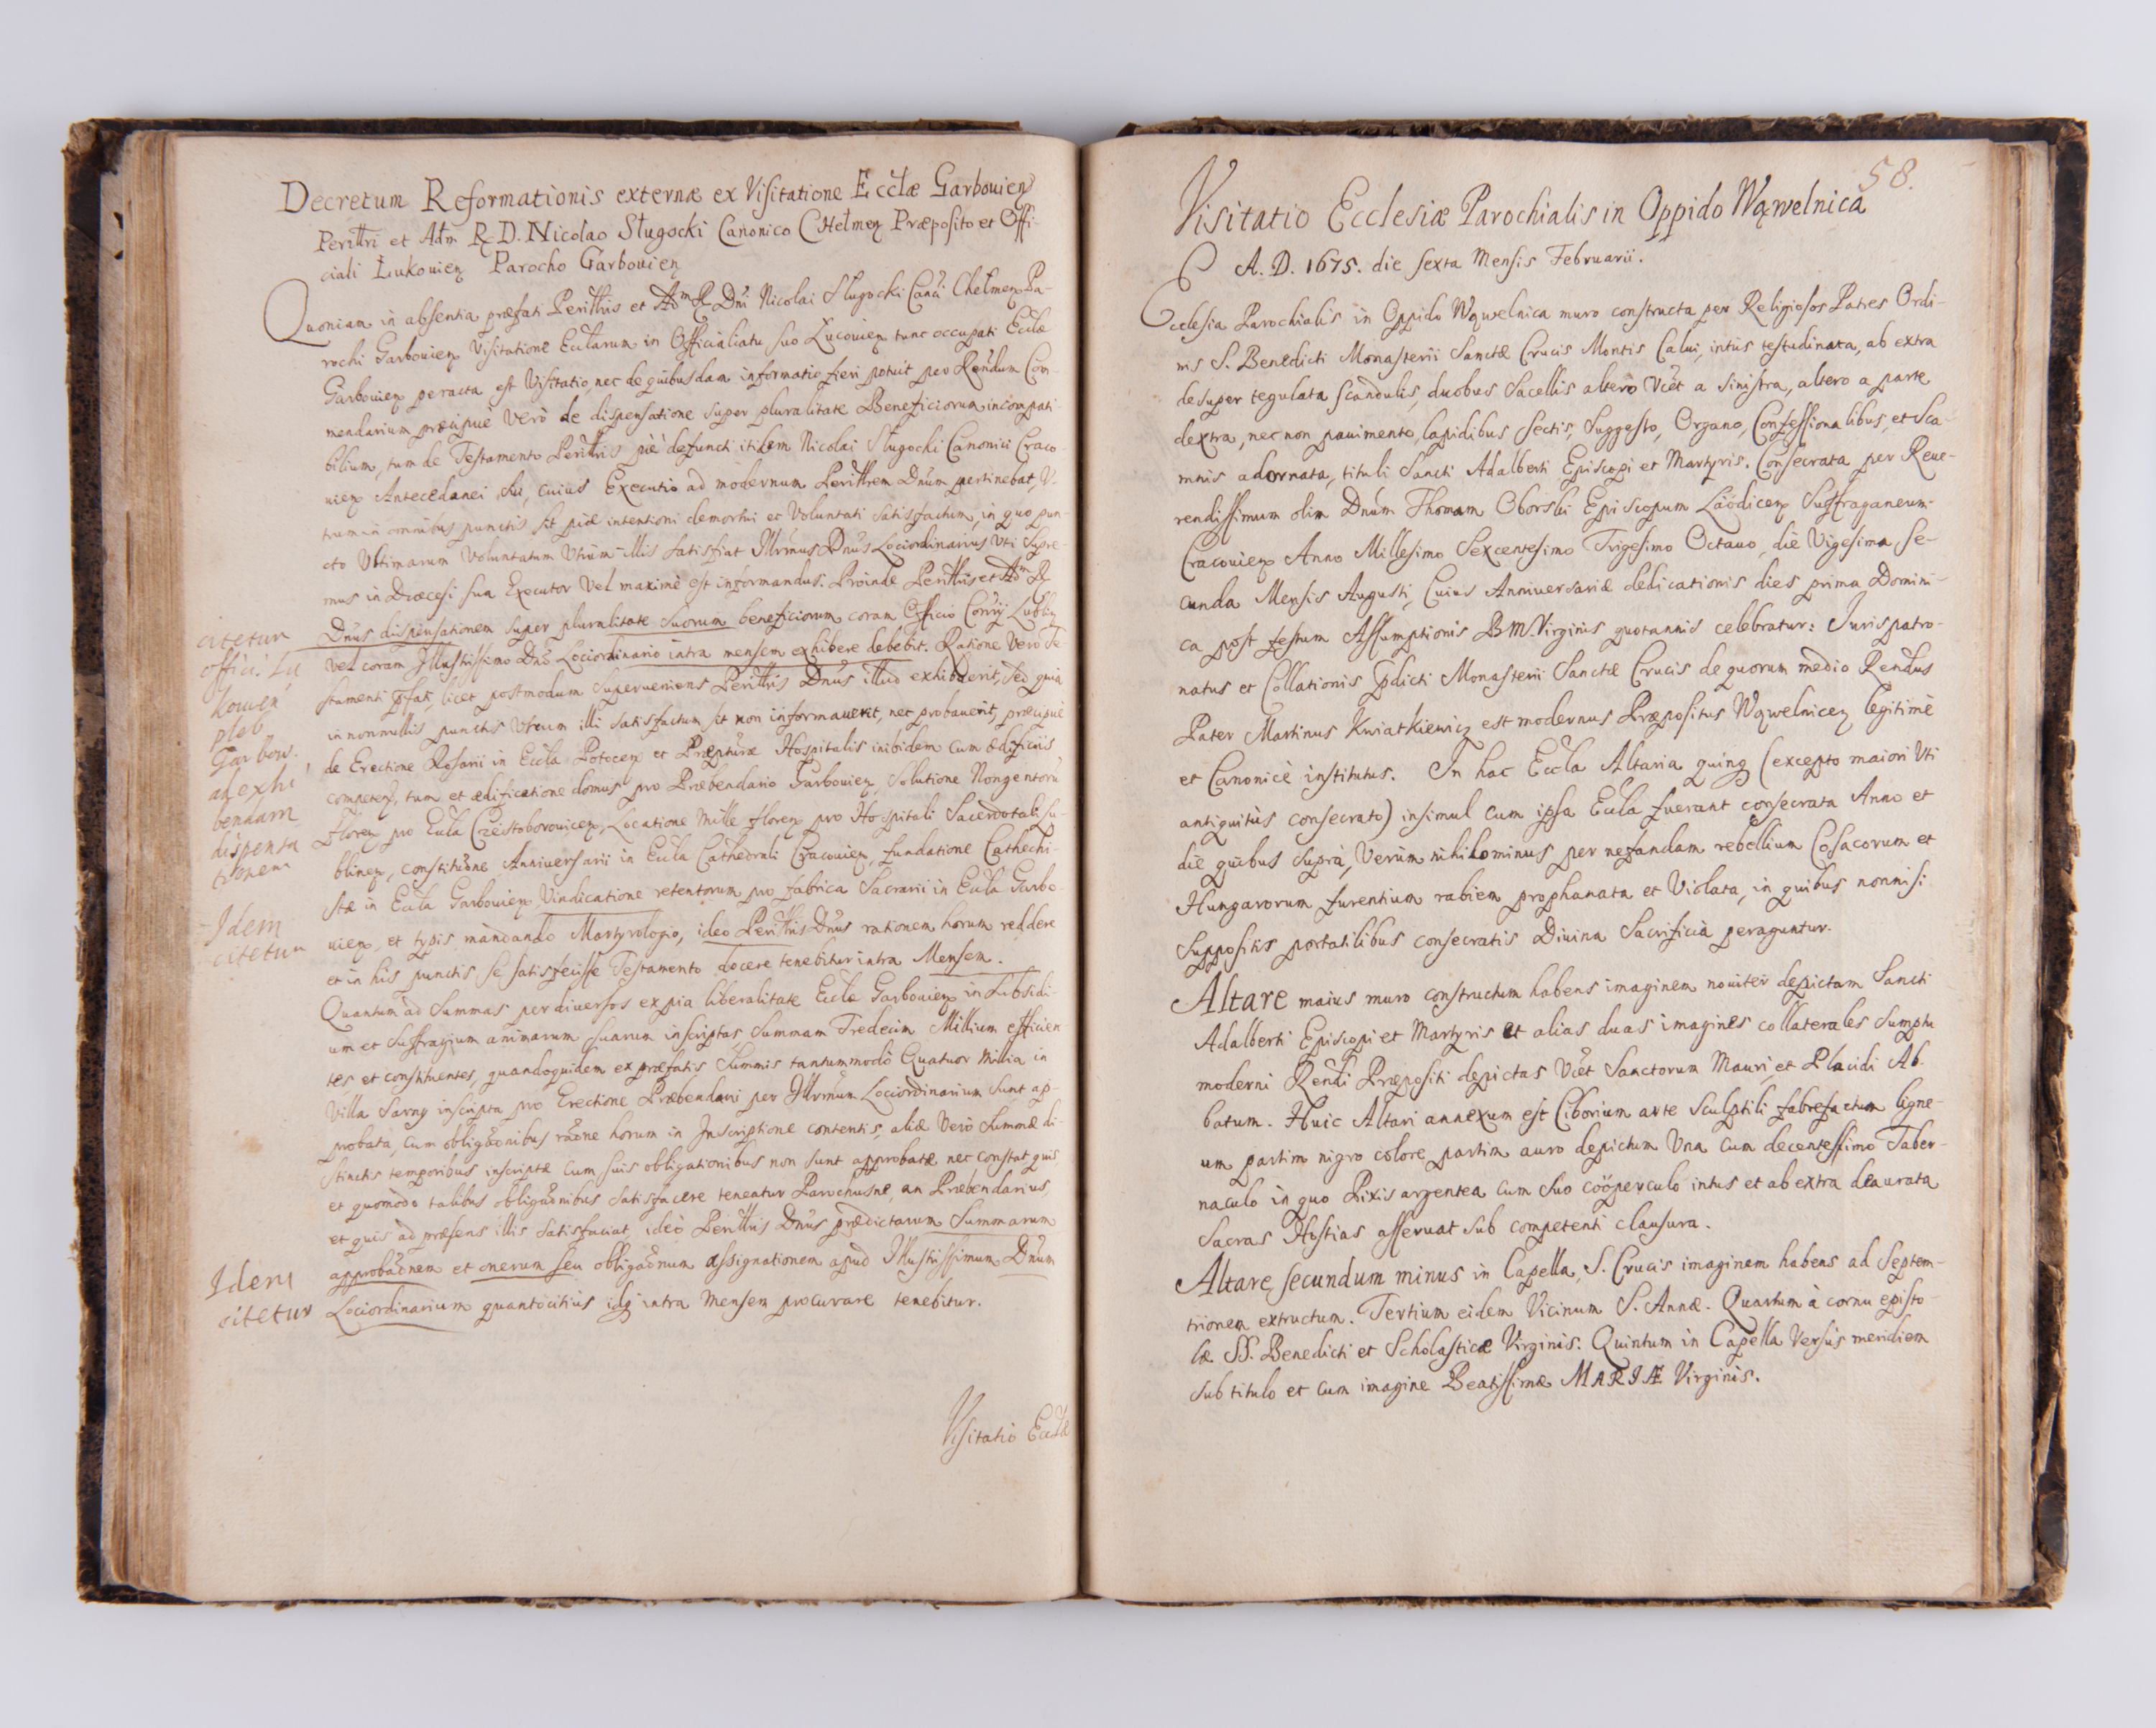 Decretum Reformationis externæ ex Visitatione Ecclæ Garbouien
Perillri et Adm R. D. Nicolao Sługocki Canonico Chełmen Præposito et Offi-
ciali Łukouien Parocho Garbouien
Quoniam in absentia præfati Perillris et Adm R. Dni Nicolai Sługocki Canci Chełmen Pa-
rochi Garbouien Visitatione Ecclarum in Officialiatu suo Lucouien tunc occupati Ecclæ
Garbouien peracta est Visitatio, nec de quibusdam informatio fieri potuit per Rendum Com-
mendarium præcipuè Verò de dispensatione super pluralitate Beneficiorum incompati-
bilium, tum de Testamento Perillris piè defuncti itidem Nicolai Sługocki Canonici Craco-
uien Antecedanei sui, cuius Executio ad modernum Perillrem Dnum pertinebat, V-
trum in omnibus punctis sit piæ intentioni demortui et Voluntati satisfactum, in quo pun-
cto Vltimarum Voluntatum Vtrùm illis satisfiat Illrmus Dnus Lociordinarius Vti Supre-
mus in Diœcesi sua Executor Vel maximè est informandus: Proinde Perillris et Adm R.
Dnus dispensationem super pluralitate suorum beneficiorum coram Officio Conrij Lublin
Vel coram Illustrissimo Dno Lociordinario intra mensem exhibere debebit. Ratione Vero Te-
stamenti pfati, licet postmodum superueniens Perillris Dnus illud exhibuerit, sed quia
in nonnullis punctis Vtrum illi satisfactum sit non informauerit, nec probauerit, præcipuè
de Erectione Rosarii in Eccla Potocen et Præpturæ Hospitalis inibidem cum ædificiis
competen, tum et ædificatione domus pro Præbendario Garbouien, Solutione Nongentorũ
Floren pro Eccla Czestoborouicen, Locatione Mille floren pro Hospitali Sacerdotali Lu-
blinen, constitutne Anniuersarii in Eccla Cathedrali Cracouien, fundatione Cathechi-
stæ in Eccla Garbouien Vindicatione retentorum pro fabrica Sacrarii in Eccla Garbo-
uien, et typis mandando Martyrologio, ideo Perillris Dnus rationem horum reddere
et in his punctis se satisfecisse Testamento docere tenebitur intra Mensem.
Quantum ad Summas per diuersos ex pia liberalitate Ecclæ Garbouien in Subsidi-
um et Suffragium animarum suarum inscriptas Summam Tredecim Millium efficien-
tes et constituentes, quandoquidem ex præfatis Summis tantummodò Quatuor Millia in
Villa Sarny inscripta pro Erectione Præbendarii per Illrmum Lociordinarium sunt ap-
probata, cum obligaõnibus raõne horum in Inscriptione contentis, aliæ Verò Summæ di-
stinctis temporibus inscriptæ cum suis obligationibus non sunt approbatæ nec constat quis
et quomodo talibus obligaõnibus satisfacere teneatur Parochusne, an Præbendarius,
et quis ad præsens illis satisfaciat, ideò Perillris Dnus prædictarum Summarum
approbaõnem et onerum seu obligaõnum assignationem apud Illustrissimum Dnum
Lociordinarium quantocitius idq intra Mensem procurare tenebitur.
citetur
offici. Lu
kouien
pleb.
Garbow.
ad exhi
bendam
dispensa
tionem
Idem
citetur
Idem
citetur
Visitatio Ecclæ
58.
Visitatio Ecclesiæ Parochialis in Oppido Wąwelnica
A. D. 1675. die sexta Mensis Februarii.
Ecclesia Parochialis in Oppido Wąwelnica muro constructa per Religiosos Patres Ordi-
nis S. Benedicti Monasterii Sanctæ Crucis Montis Calui, intùs testudinata, ab extra
desuper tegulata scandulis, duobus Sacellis altero Vczt a sinistra, altero a parte
dextra, nec non pauimento, lapidibus sectis, Suggesto, Organo, Confessionalibus, et Sca-
mnis adornata, tituli Sancti Adalberti Episcopi et Martyris. Consecrata per Reue-
rendissimum olim Dnum Thomam Oborski Episcopum Laödicen Suffraganeum
Cracouien Anno Millesimo Sexcentesimo Trigesimo Octauo, die Vigesima se-
cunda Mensis Augusti, Cuius Anniuersariæ dedicationis dies prima Domini-
ca post festum Assumptionis B M Virginis quotannis celebratur: Iurispatro-
natus et Collationis pdicti Monasterii Sanctæ Crucis de quorum medio Rendus
Pater Martinus Kwiatkiewicz est modernus Præpositus Wąwelnicen legitimè
et Canonicè institutus. In hac Eccla Altaria quinq (excepto maiori Vti
antiquitùs consecrato) insimul cum ipsa Eccla fuerant consecrata Anno et
die quibus suprà, Verùm nihilominus per nefandam rebellium Cosacorum et
Hungarorum furentium rabiem prophanata et Violata, in quibus nonnisi
suppositis portatilibus consecratis Diuina Sacrificia peraguntur.
Altare maius muro constructum habens imaginem nouiter depictam Sancti
Adalberti Episcopi et Martyris et alias duas imagines collaterales Sumptu
moderni Rendi Præpositi depictas Vczt Sanctorum Mauri, et Placidi Ab-
batum. Huic Altari annexum est Ciborium arte sculptili fabrefactum ligne-
um partim nigro colore partim auro depictum Vna cum decentessimo Taber-
naculo in quo Pixis argentea cum suo coöperculo intus et ab extra deaurata
sacras Hostias asseruat sub competenti clausura.
Altare secundum minus in Capella S. Crucis imaginem habens ad Septem-
trionem extructum. Tertium eidem Vicinum S. Annæ. Quartum à cornu episto-
læ SS. Benedicti et Scholasticæ Virginis. Quintum in Capella Versùs meridiem
sub titulo et cum imagine Beatissimæ MARIÆ Virginis.